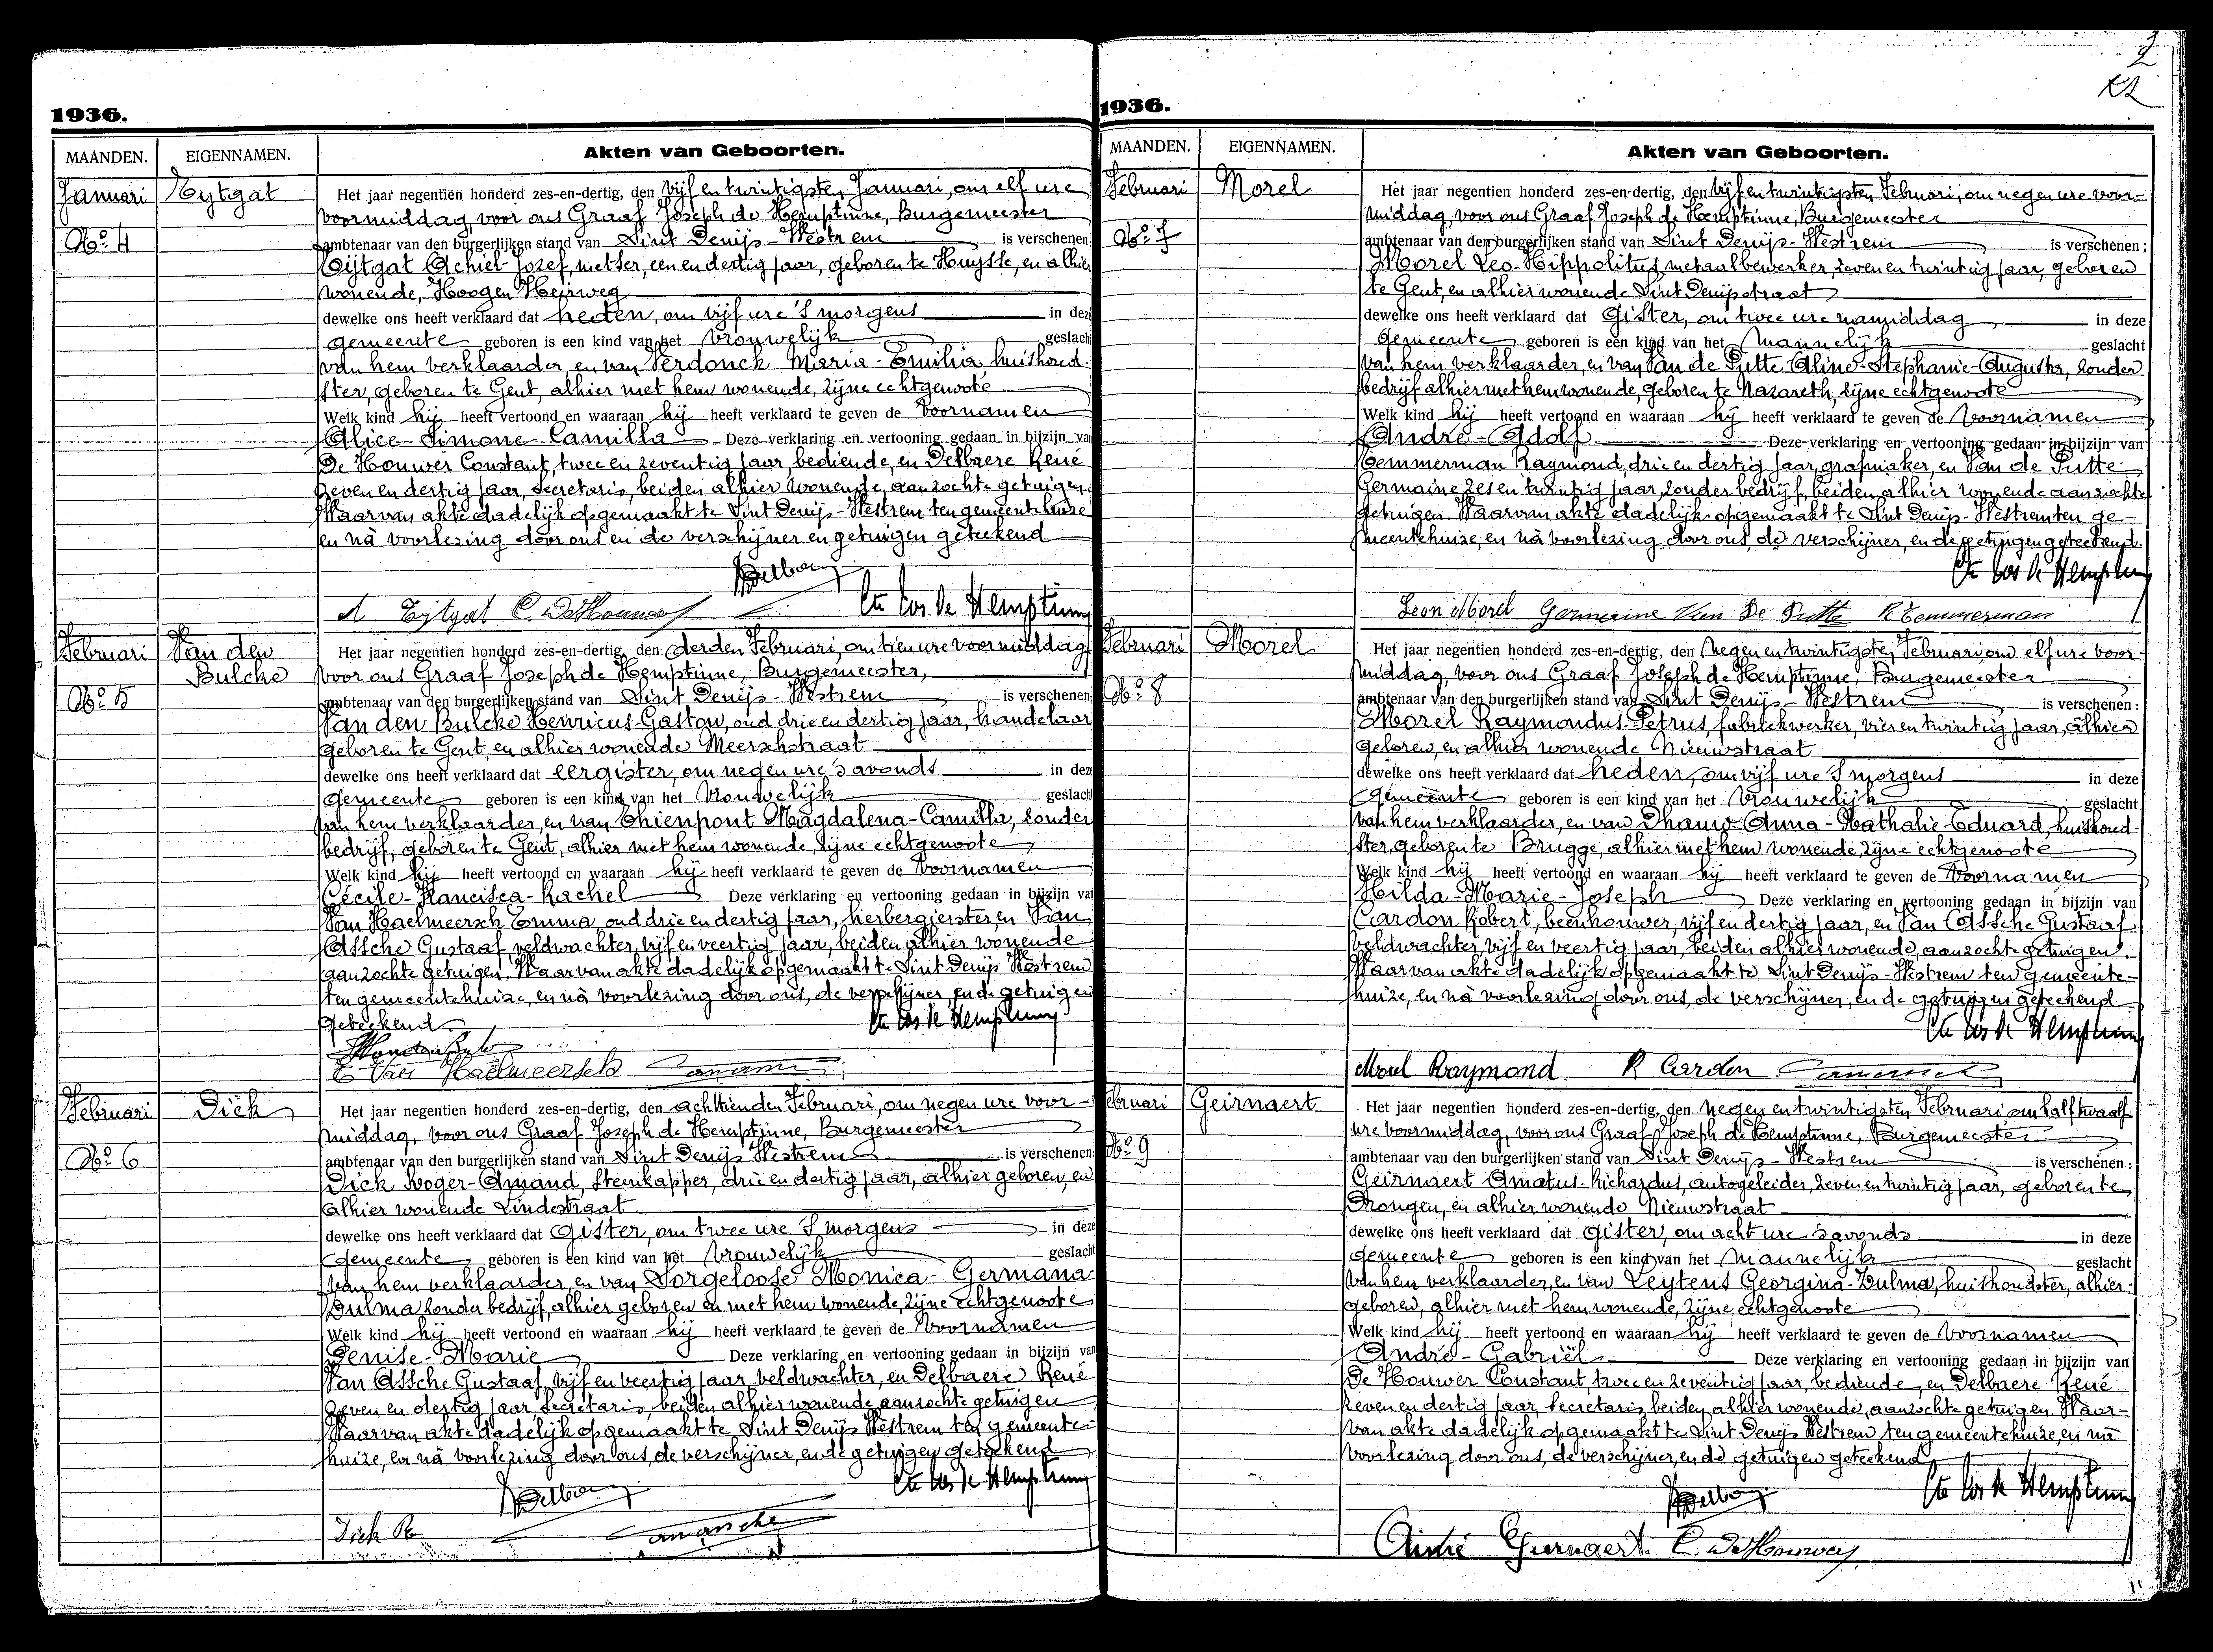 2
1936.
MAANDEN. EIGENNAMEN. Akten van Geboorten.
Januari Eytgat Het jaar negentien honderd zes-en-dertig, den vijf en twintigsten Januari, om elf ure
voormiddag, voor ons Graaf Joseph de Hemptinne, Burgemeester
No. 4 ambtenaar van den burgerlijken stand van Sint Denijs-Westrem is verschenen
Eijtgat Achiel-Jozef, metser, een en dertig jaar, geboren te Huysse, en alhier
wonende, Hoogen Heirweg
dewelke ons heeft verklaard dat heden, om vijf ure 's morgens in deze
gemeente geboren is een kind van het vrouwelijk geslach
van hem verklaarder, en van Verdonck Maria-Emilia, huishoud-
ster, geboren te Gent, alhier met hem wonende, zijne echtgenoote
Welk kind hij heeft vertoond en waaraan hij heeft verklaard te geven de voornamen
Alice-Simone-Camilla Deze verklaring en vertooning gedaan in bijzijn van
De Houwer Constant, twee en zeventig jaar, bediende, en Delbaere René
zeven en dertig jaar, secretaris, beiden alhier wonende, aanzochte getuigen.
Waarvan akte dadelijk opgemaakt te Sint Denijs-Westrem ten gemeentehuize
en nà voorlezing door ons en de verschijner en getuigen geteekend
A. Eijtgat C. De Houwer Cte Jos de Hemptinne
Februari Van den Het jaar negentien honderd zes-en-dertig, den derden Februari, om tien ure voormiddag
Bulcke voor ons Graaf Joseph de Hemptinne, Burgemeester,
No. 5 ambtenaar van den burgerlijken stand van Sint Denijs-Westrem is verschenen
Van den Bulcke Henricus-Gaston, oud drie en dertig jaar, handelaar
geboren te Gent, en alhier wonende Meerschstraat
dewelke ons heeft verklaard dat eergister, om negen ure 's avonds in deze
gemeente geboren is een kind van het vrouwelijk geslach
van hem verklaarder, en van Thienpont Magdalena-Camilla, zonder
bedrijf, geboren te Gent, alhier met hem wonende, zijne echtgenoote
Welk kind hij heeft vertoond en waaraan hij heeft verklaard te geven de voornamen
Cécile-Francisca-Rachel Deze verklaring en vertooning gedaan in bijzijn van
Van Haelmeersch Emma, oud drie en dertig jaar, herbergierster, en Van
Assche Gustaaf veldwachter, vijf en veertig jaar, beiden alhier wonende
aanzochte getuigen. Waarvan akte dadelijk opgemaakt te Sint Denijs Westrem
ten gemeentehuize, en nà voorlezing door ons, de verschijner, en de getuigen
geteekend. Cte Jos de Hemptinne
E Van Haelmeersch
Februari Dick Het jaar negentien honderd zes-en-dertig, den achttienden Februari, om negen ure voor-
middag, voor ons Graaf Joseph de Hemptinne, Burgemeester
No. 6 ambtenaar van den burgerlijken stand van Sint Denijs Westrem is verschenen
Dick Roger-Amand, steenkapper, drie en dertig jaar, alhier geboren, en
alhier wonende Lindestraat
dewelke ons heeft verklaard dat gister, om twee ure 's morgens in deze
gemeente geboren is een kind van het vrouwelijk geslacht
van hem verklaarder, en van Sorgeloose Monica-Germana
Zulma zonder bedrijf, alhier geboren en met hem wonende, zijne echtgenoote
Welk kind hij heeft vertoond en waaraan hij heeft verklaard te geven de voornamen
Denise-Marie Deze verklaring en vertooning gedaan in bijzijn van
Van Assche Gustaaf, vijf en veertig jaar, veldwachter, en Delbaere René
zeven en dertig jaar secretaris, beiden alhier wonende aanzochte getuigen
Waarvan akte dadelijk opgemaakt te Sint Denijs Westrem ten gemeente-
huize, en nà voorlezing door ons, de verschijner, en de getuigen geteekend
Cte Jos de Hemptinne
Dick R. Vanassche
1936.
MAANDEN. EIGENNAMEN. Akten van Geboorten.
Februari Morel Het jaar negentien honderd zes-en-dertig, den vijf en twintigsten Februari, om negen ure voor-
middag, voor ons Graaf Joseph de Hemptinne, Burgemeester
No. 7 ambtenaar van den burgerlijken stand van Sint Denijs-Westrem is verschenen;
Morel Leo-Hippolitus, metaalbewerker, zeven en twintig jaar, geboren
te Gent, en alhier wonende Sint Denijsstraat
dewelke ons heeft verklaard dat gister, om twee ure namiddag in deze
gemeente geboren is een kind van het mannelijk geslacht
van hem verklaarder, en van Van de Putte Aline-Stephanie-Augusta, zonder
bedrijf alhier met hem wonende, geboren te Nazareth, zijne echtgenoote
Welk kind hij heeft vertoond en waaraan hij heeft verklaard te geven de voornamen
André-Adolf Deze verklaring en vertooning gedaan in bijzijn van
Temmerman Raymond, drie en dertig jaar, grafmaker, en Van de Putte
Germaine zes en twintig jaar, zonder bedrijf, beiden alhier wonende aanzochte
getuigen. Waarvan akte dadelijk opgemaakt te Sint Denijs-Westrem ten ge-
meentehuize, en nà voorlezing door ons, de verschijner, en de getuigen geteekend.
Cte Jos de Hemptinne
Leon Morel Germaine Van De Putte R Temmerman
Februari Morel Het jaar negentien honderd zes-en-dertig, den negen en twintigsten Februari, om elf ure voor-
middag, voor ons Graaf Joseph de Hemptinne, Burgemeester
No. 8 ambtenaar van den burgerlijken stand van Sint Denijs-Westrem is verschenen:
Morel Raymondus-Petrus, fabriekwerker, vier en twintig jaar, alhier
geboren, en alhier wonende Nieuwstraat
dewelke ons heeft verklaard dat heden, om vijf ure 's morgens in deze
gemeente geboren is een kind van het vrouwelijk geslacht
van hem verklaarder, en van Dhauw Anna-Nathalie-Eduard, huishoud-
ster, geboren te Brugge, alhier met hem wonende, zijne echtgenoote
Welk kind hij heeft vertoond en waaraan hij heeft verklaard te geven de voornamen
Hilda-Marie-Joseph Deze verklaring en vertooning gedaan in bijzijn van
Cardon Robert, beenhouwer, vijf en dertig jaar, en Van Assche Gustaaf
veldwachter, vijf en veertig jaar, beiden alhier wonende, aanzochte getuigen.
Waarvan akte dadelijk opgemaakt te Sint Denijs-Westrem ten gemeente-
huize, en nà voorlezing door ons, de verschijner, en de getuigen geteekend
Cte Jos de Hemptinne
Morel Raymond R Cardon
ebruari Geirnaert Het jaar negentien honderd zes-en-dertig, den negen en twintigsten Februari, om half twaalf
ure voormiddag, voor ons Graaf Joseph de Hemptinne, Burgemeester
No. 9 ambtenaar van den burgerlijken stand van Sint Denijs-Westrem is verschenen:
Geirnaert Amatus-Richardus, autogeleider, zeven en twintig jaar, geboren te
Drongen, en alhier wonende Nieuwstraat
dewelke ons heeft verklaard dat gister, om acht ure 's avonds in deze
gemeente geboren is een kind van het mannelijk geslacht
van hem verklaarder, en van Leytens Georgina-Zulma, huishoudster, alhier
geboren, alhier met hem wonende, zijne echtgenoote
Welk kind hij heeft vertoond en waaraan hij heeft verklaard te geven de voornamen
André-Gabriël Deze verklaring en vertooning gedaan in bijzijn van
De Houwer Constant, twee en zeventig jaar, bediende, en Delbaere René
zeven en dertig jaar, secretaris, beiden alhier wonende, aanzochte getuigen. Waar-
van akte dadelijk opgemaakt te Sint Denijs Westrem ten gemeentehuize, en nà
voorlezing door ons, de verschijner, en de getuigen geteekend
Cte Jos de Hemptinne
Aimé Geirnaert. C. De Houwer